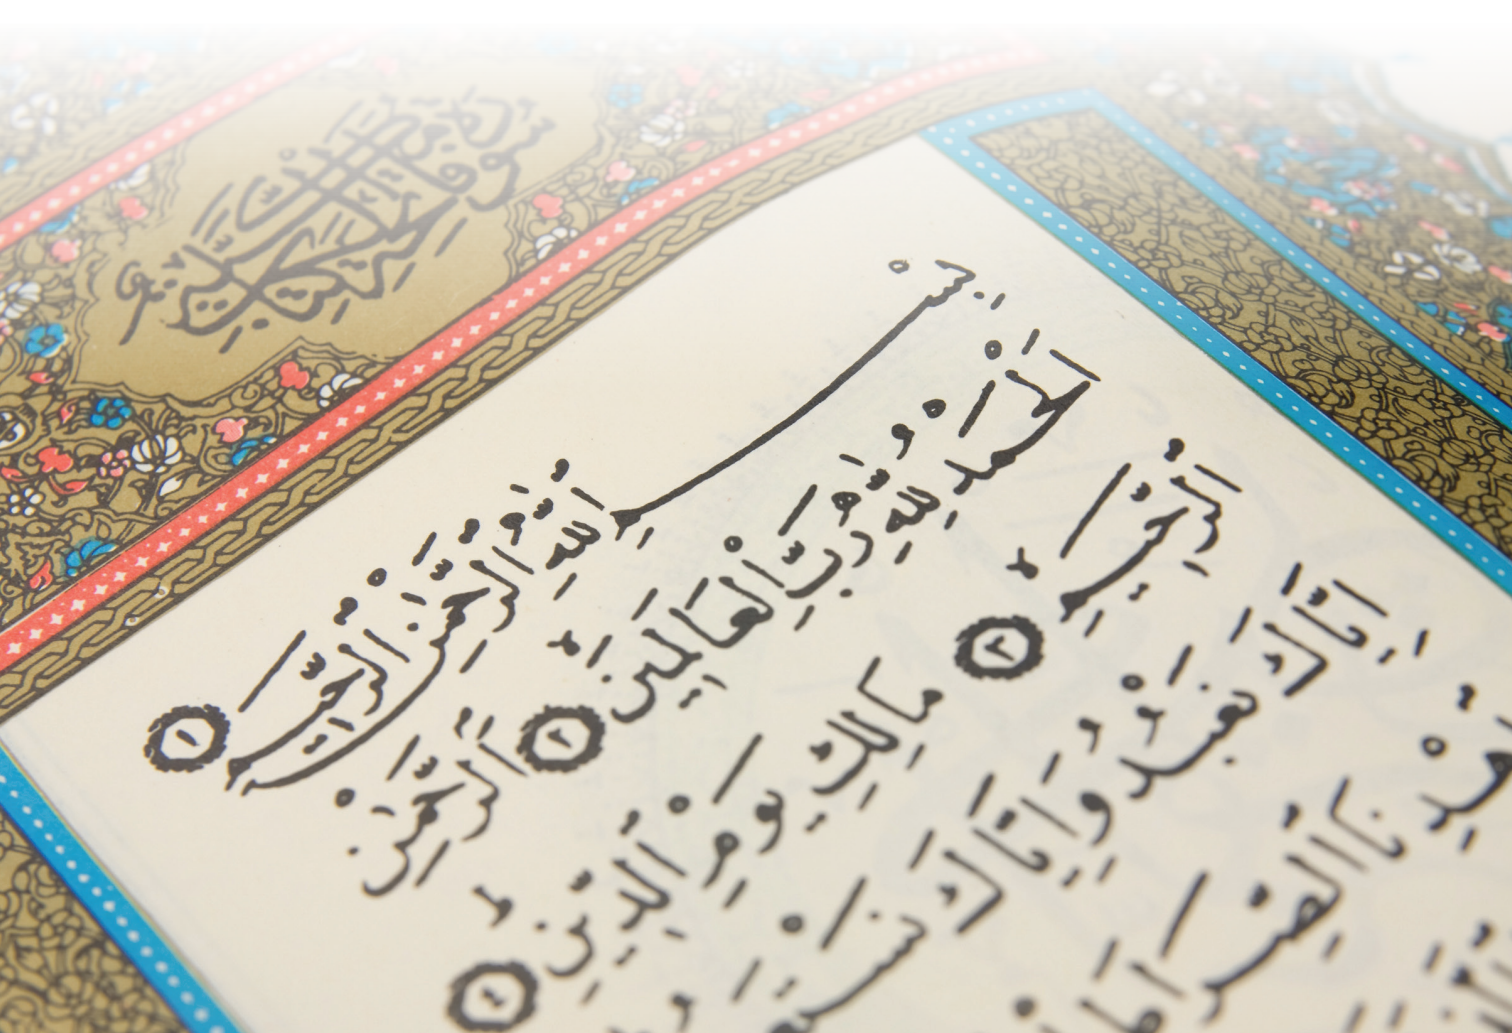 سورة فاتحة الكتاب
بِسْمِ اللهِ الرَّحْمٰنِ الرَّحِيمِ ١
اَلْحَمْدُ لِلهِ رَبِّ الْعَالَمِينَ ٢ اَلرَّحْمٰنِ
الرَّحِيمِ ٣ مَالِكِ يَوْمِ الدِّينِ ٤
اِيَّاكَ نَعْبُدُ وَاِيَّاكَ نَسْتَعِ
هْدِنَا الصِّرَاطَ